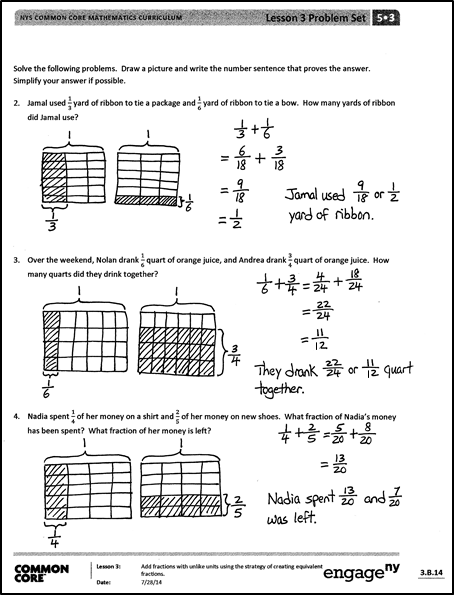 NYS COMMON CORE MATHEMATICS CURRICULUM Lesson 3 Problem Set 5•3
Solve the following problems. Draw a picture and write the number sentence that proves the answer.
Simplify your answer if possible.
2. Jamal used 1/3 yard of ribbon to tie a package and 1/6 yard of ribbon to tie a bow. How many yards of ribbon
did Jamal use?
1 1
1/3 + 1/6
= 6/18 + 3/18
= 9/18
= 1/2
1/3
1/6
Jamal used 9/18 or 1/2
yard of ribbon.
3. Over the weekend, Nolan drank 1/6 quart of orange juice, and Andrea drank 3/4 quart of orange juice. How
many quarts did they drink together?
1 1
1/6 + 3/4 = 4/24 + 18/24
= 22/24
= 11/12
3/4
1/6
They drank 22/24 or 11/12 quart
together.
4. Nadia spent 1/4 of her money on a shirt and 2/5 of her money on new shoes. What fraction of Nadia's money
has been spent? What fraction of her money is left?
1 1
1/4 + 2/5 = 5/20 + 8/20
= 13/20
2/5
1/4
Nadia spent 13/20 and 7/20
was left.
COMMON CORE™
Lesson 3: Add fractions with unlike units using the strategy of creating equivalent
fractions.
Date: 7/28/14
engage ny
3.B.14